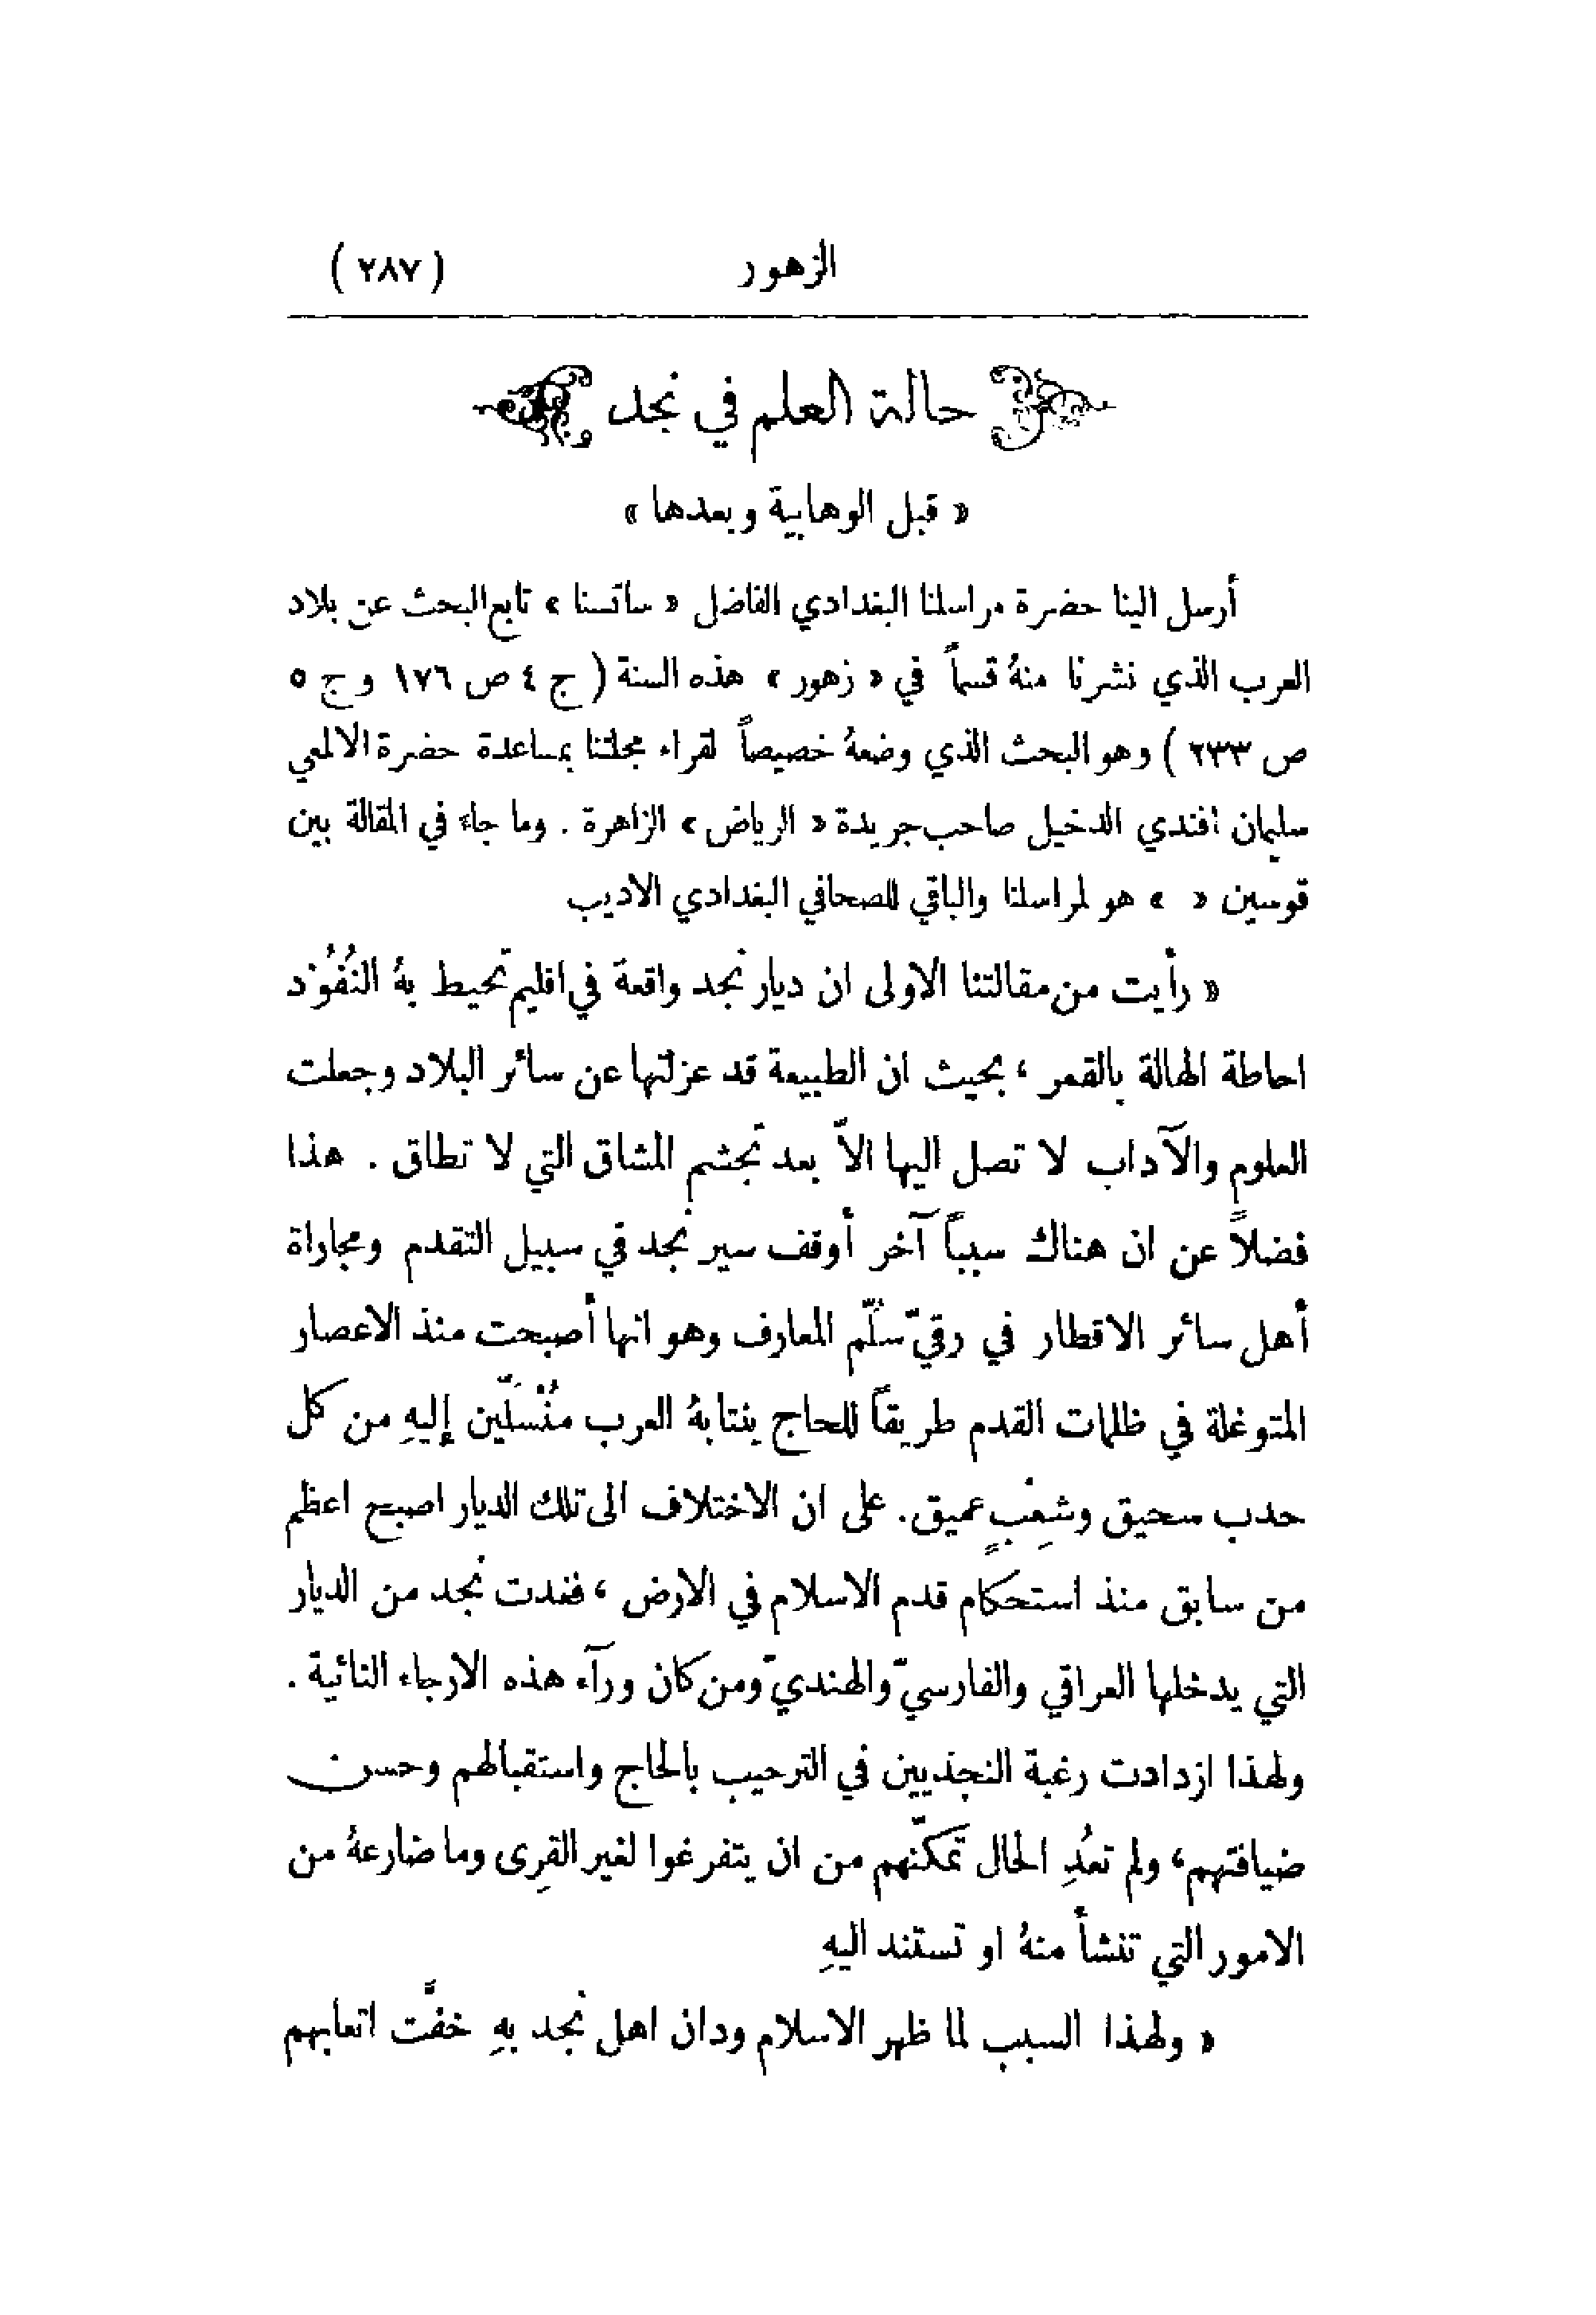 الزهور (٢٨٧)
حالة العلم في نجد
« قبل الوهابية وبعدها »
أرسل الينا حضرة مراسلنا البغدادي الفاضل « ساتسنا » تابع البحث عن بلاد
العرب الذي نشرنا منهُ قسماً في « زهور » هذه السنة ( ج ٤ ص ١٧٦ و ج ٥
ص ٢٣٣ ) وهو البحث الذي وضعهُ خصيصاً لقراء مجلتنا بمساعدة حضرة الالمعي
سليمان افندي الدخيل صاحب جريدة « الرياض » الزاهرة . وما جاءَ في المقالة بين
قوسين « » هو لمراسلنا والباقي للصحافي البغدادي الاديب
« رأيت من مقالتنا الاولى ان ديار نجد واقعة في اقليم تحيط بهُ النُفُوْد
احاطة الهالة بالقمر ، بحيث ان الطبيعة قد عزلتها عن سائر البلاد وجعلت
العلوم والآداب لا تصل اليها الاَّ بعد تجشم المشاق التي لا تطاق . هذا
فضلاً عن ان هناك سبباً آخر أوقف سير نجد في سبيل التقدم ومجاراة
أهل سائر الاقطار في رقيّ سلَّم المعارف وهو انها أصبحت منذ الاعصار
المتوغلة في ظلمات القدم طريقاً للحاج ينتابهُ العرب مُنْسَلّين إليهِ من كل
حدب سحيق وشِعْبٍ عميق. على ان الاختلاف الى تلك الديار اصبح اعظم
من سابق منذ استحكام قدم الاسلام في الارض ، فغدت نجد من الديار
التي يدخلها العراقي والفارسيّ والهنديّ ومن كان ورآء هذه الارجاء النائية .
ولهذا ازدادت رغبة النجذيين في الترحيب بالحاج واستقبالهم وحسن
ضيافتهم، ولم تعُدِ الحال تمكّنهم من ان يتفرغوا لغير القِرى وما ضارعهُ من
الامور التي تنشأ منهُ او تستند اليهِ
« ولهذا السبب لما ظهر الاسلام ودان اهل نجد بهِ خفَّت اتعابهم